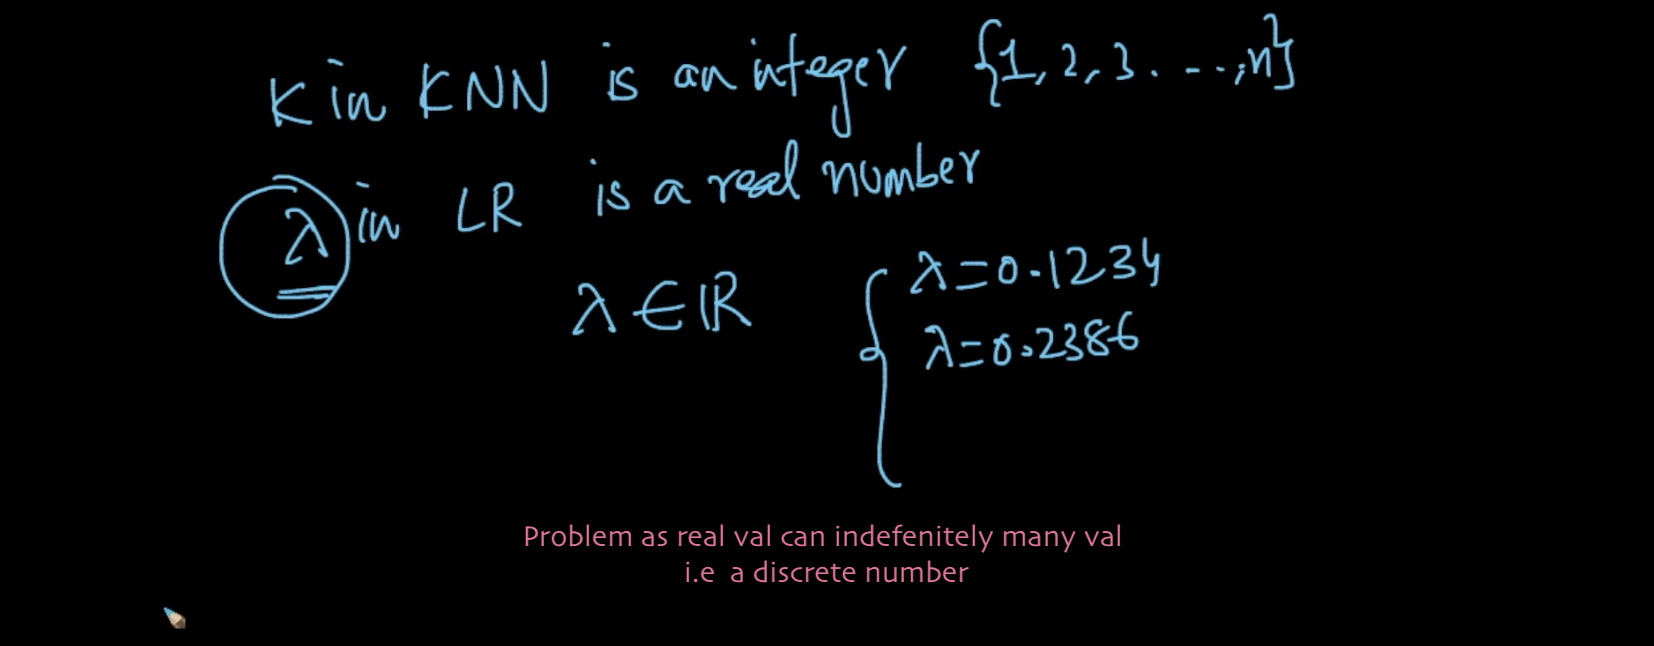 K in KNN is an integer {1, 2, 3. ---, n}
λ in LR is a real number
λ ∈ ℝ
λ=0.1234
λ=0.2386
Problem as real val can indefenitely many val
i.e a discrete number